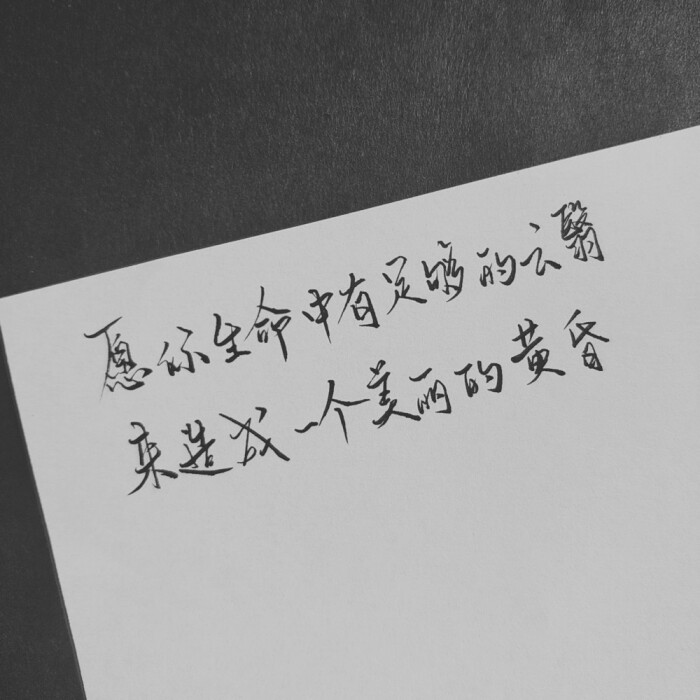 愿你生命中有足够的云翳
来造成一个美丽的黄昏